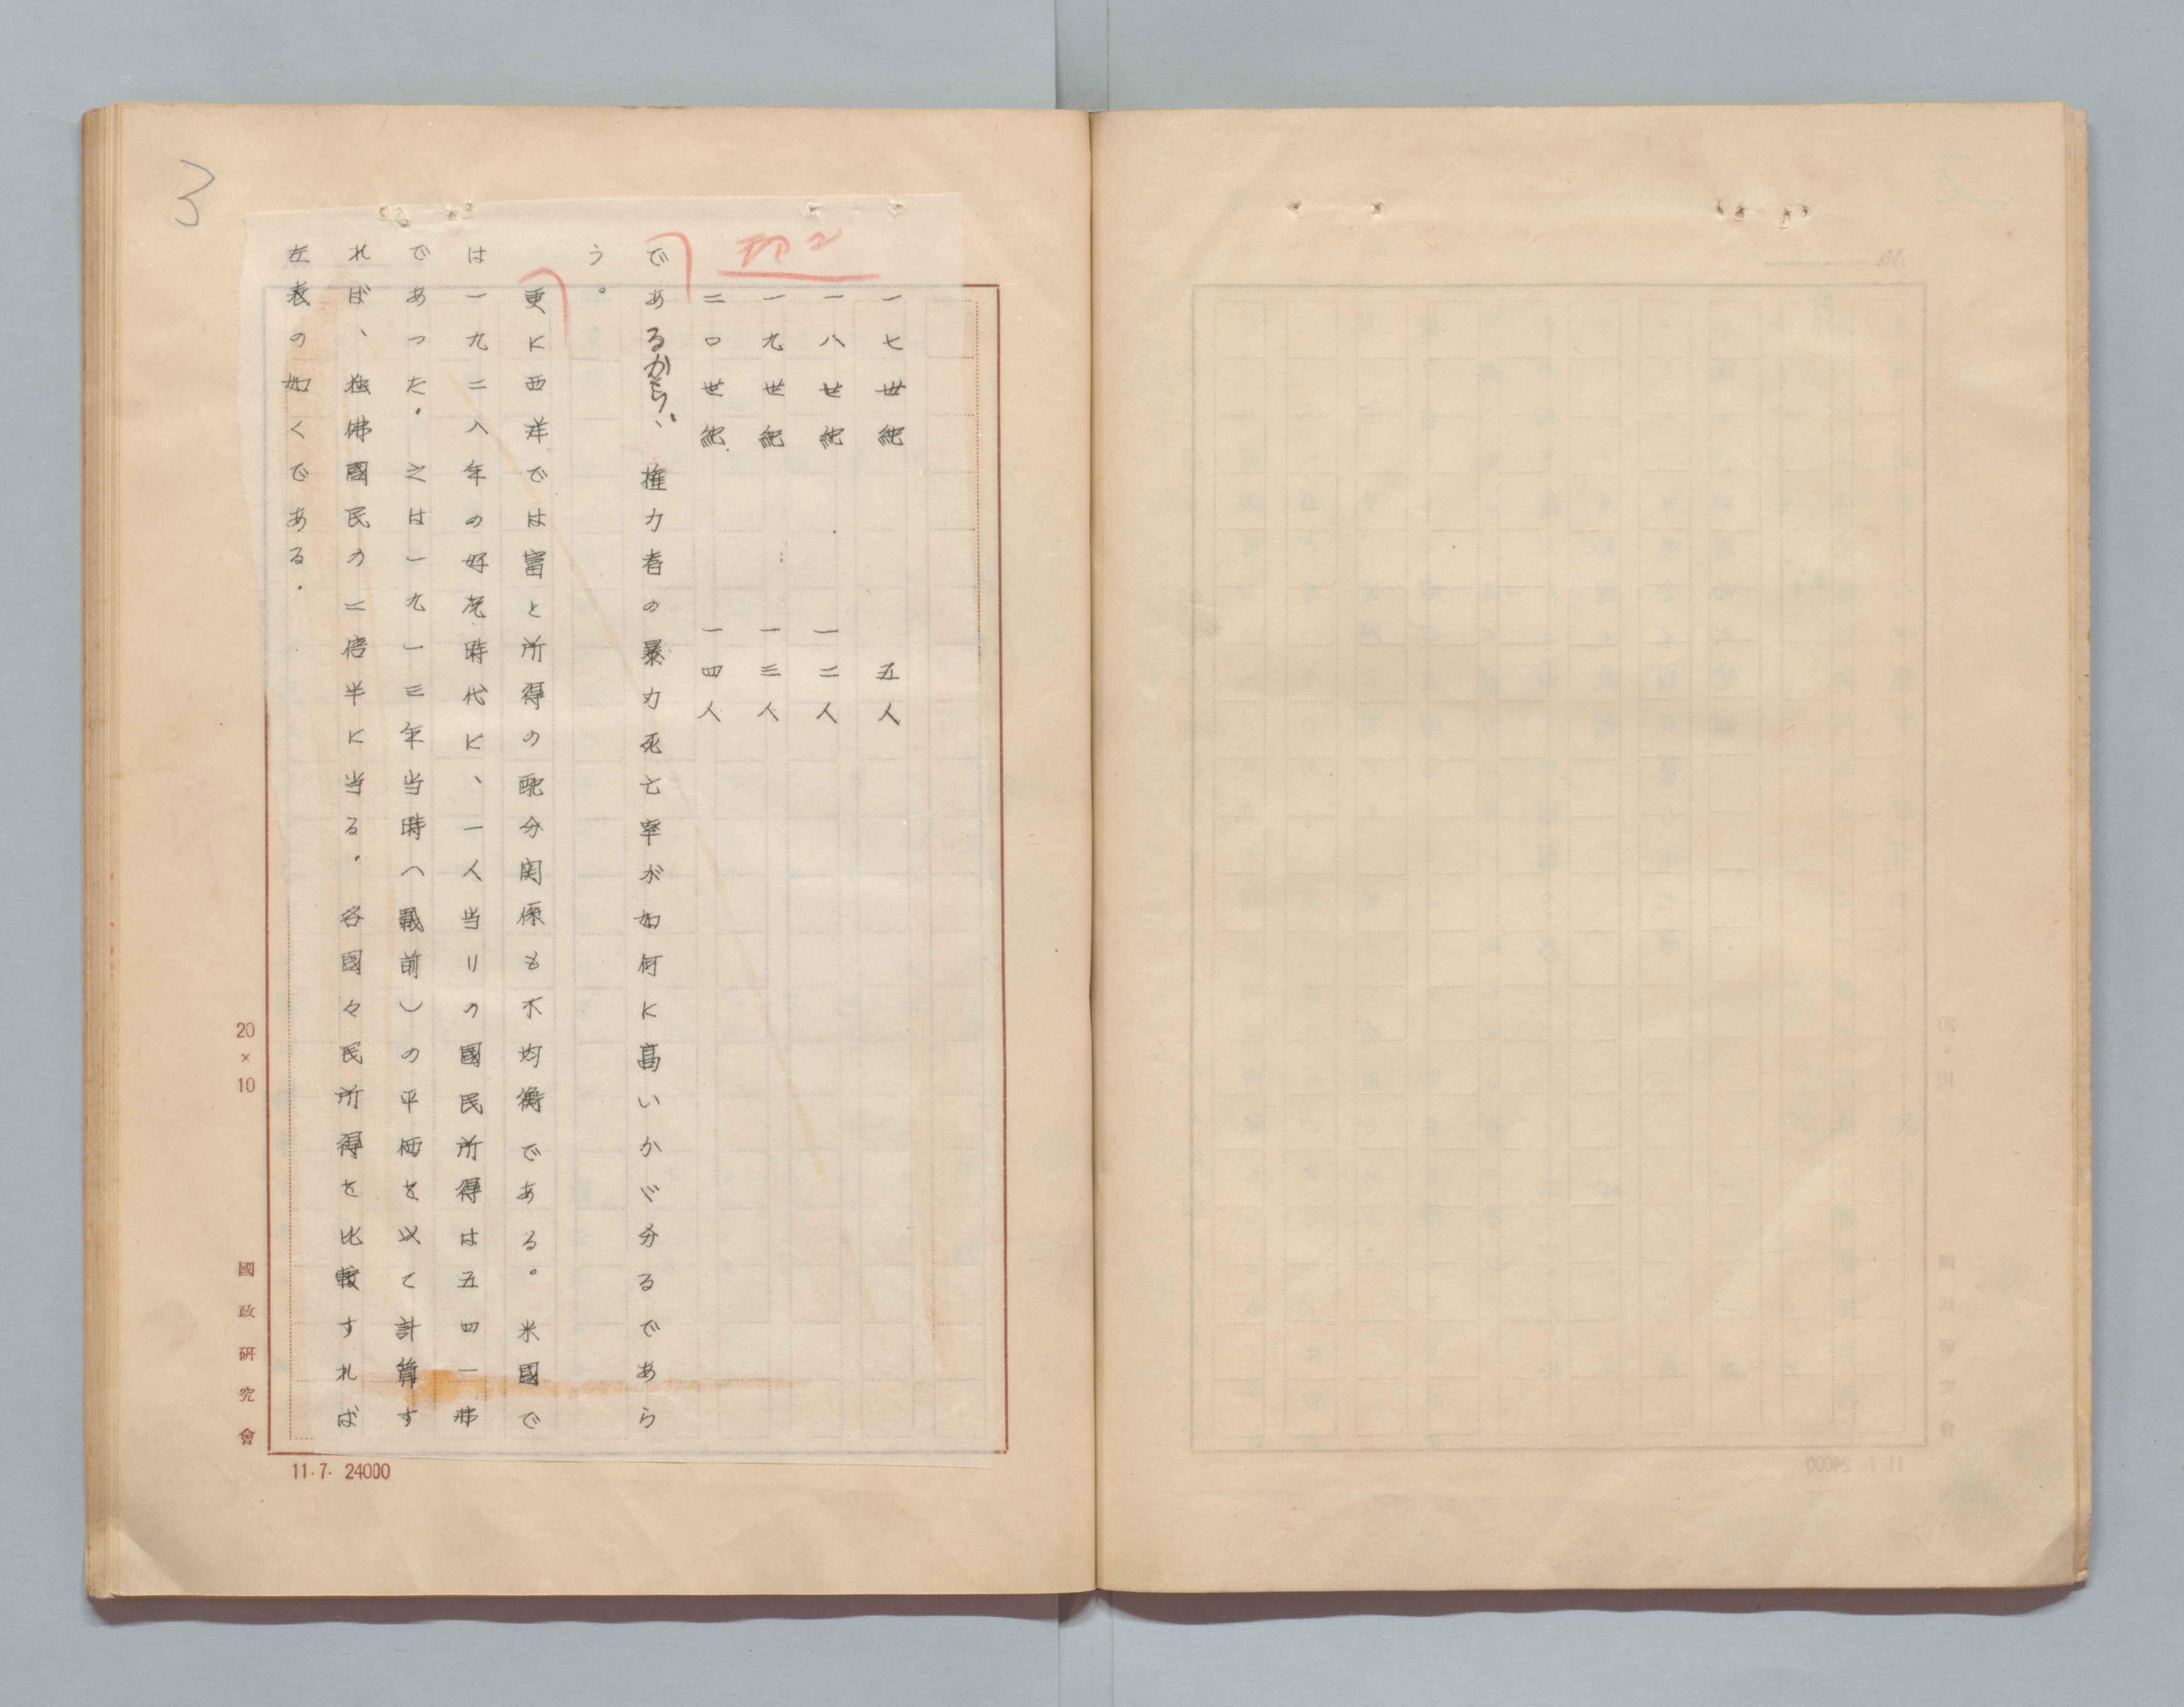 一七世紀　五人
一八世紀　一二人
一九世紀　一三人
二〇世紀　一四人
であるから、権力者の暴力死亡率が如何に高いかゞ分るであら
う。
更に西洋では富と所得の配分関係も不均衡である。米國で
は一九二八年の好況時代に、一人当りの國民所得は五四一弗
であった。之は一九一三年当時（戦前）の平価を以て計算す
れば、独佛國民の二倍半に当る。各國々民所得を比較すれば
左表の如くである。
3
20×10
國政研究會
11.7. 24000